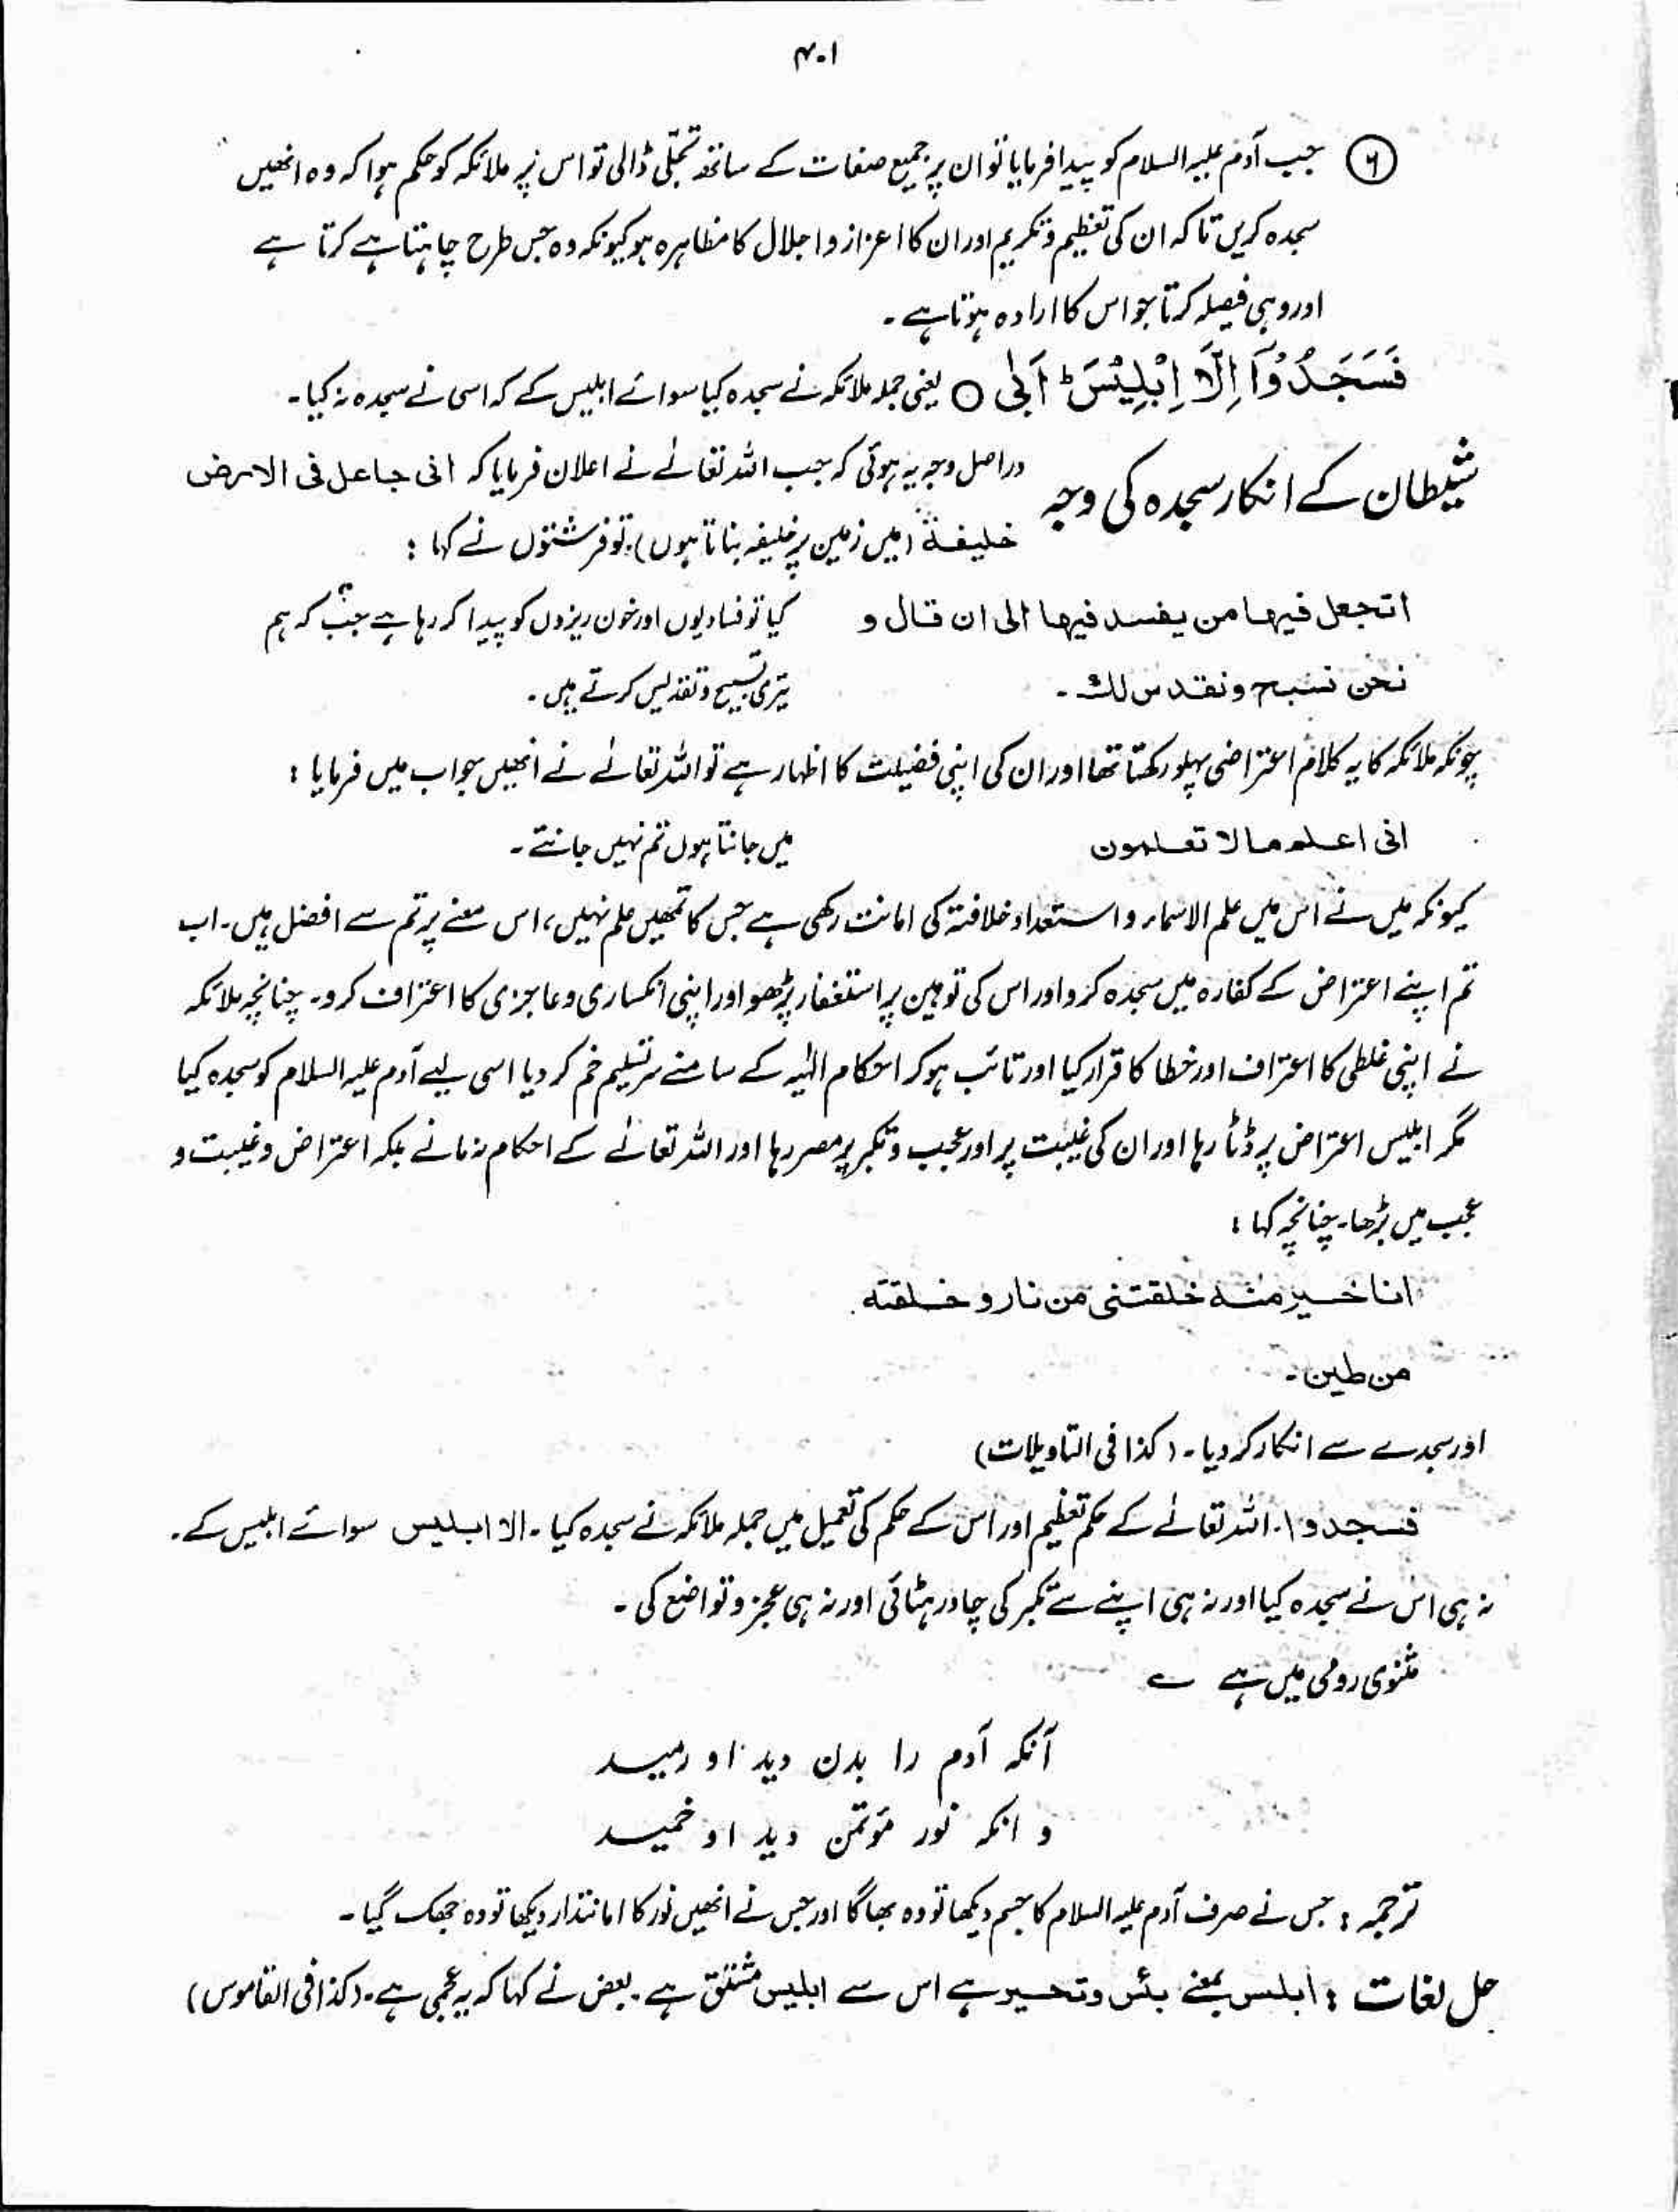 ۴۰۱
۶ جب آدم علیہ السلام کو پیدا فرمایا تو ان پر جمیع صفات کے ساتھ تجلّی ڈالی تو اس پر ملائکہ کو حکم ہوا کہ وہ انھیں
سجدہ کریں تاکہ ان کی تعظیم و تکریم اور ان کا اعزاز و اجلال کا مظاہرہ ہو کیونکہ وہ جس طرح چاہتا ہے کرتا ہے
اور وہی فیصلہ کرتا جو اس کا ارادہ ہوتا ہے ۔
فَسَجَدُوْٓا اِلَّآ اِبْلِیْسَ ؕ اَبٰی ○ یعنی جملہ ملائکہ نے سجدہ کیا سوائے ابلیس کے کہ اسی نے سجدہ نہ کیا ۔
شیطان کے انکار سجدہ کی وجہ دراصل وجہ یہ ہوئی کہ جب اللہ تعالےٰ نے اعلان فرمایا کہ انی جاعل فی الارض
خلیفۃ (میں زمین پر خلیفہ بناتا ہوں) تو فرشتوں نے کہا :
اتجعل فیہا من یفسد فیہا الی ان قال و کیا تو فسادیوں اور خون ریزوں کو پیدا کر رہا ہے جب کہ ہم
نحن نسبح ونقدس لك ۔ تیری تسبیح و تقدیس کرتے ہیں ۔
چونکہ ملائکہ کا یہ کلام اعتراضی پہلو رکھتا تھا اور ان کی اپنی فضیلت کا اظہار ہے تو اللہ تعالےٰ نے انھیں جواب میں فرمایا :
انی اعلم مالا تعلمون میں جانتا ہوں تم نہیں جانتے ۔
کیونکہ میں نے اس میں علم الاسماء و استعداد خلافتہ کی امانت رکھی ہے جس کا تمھیں علم نہیں، اس معنے پر تم سے افضل ہیں ۔ اب
تم اپنے اعتراض کے کفارہ میں سجدہ کرو اور اس کی توہین پر استغفار پڑھو اور اپنی انکساری و عاجزی کا اعتراف کرو ۔ چنانچہ ملائکہ
نے اپنی غلطی کا اعتراف اور خطا کا قرار کیا اور تائب ہوکر احکام الٰہیہ کے سامنے سر تسلیم خم کر دیا اسی لیے آدم علیہ السلام کو سجدہ کیا
مگر ابلیس اعتراض پر ڈٹا رہا اور ان کی غیبت پر اور عجب و تکبر پر مصر رہا اور اللہ تعالےٰ کے احکام نہ مانے بلکہ اعتراض و غیبت و
عجب میں بڑھا ۔ چنانچہ کہا :
انا خیر منہ خلقتنی من نار و خلقتہ
من طین ۔
اور سجدے سے انکار کر دیا ۔ (کذا فی التاویلات)
فسجدوا ۔ اللہ تعالےٰ کے حکم تعظیم اور اس کے حکم کی تعمیل میں جملہ ملائکہ نے سجدہ کیا ۔ الا ابلیس سوائے ابلیس کے ۔
نہ ہی اس نے سجدہ کیا اور نہ ہی اپنے سے تکبر کی چادر ہٹائی اور نہ ہی عجز و تواضع کی ۔
مثنوی رومی میں ہے ؎
آنکہ آدم را بدن دید او رمید
و انکہ نور مؤتمن دید او خمید
ترجمہ : جس نے صرف آدم علیہ السلام کا جسم دیکھا تو وہ بھاگا اور جس نے انھیں نور کا امانتدار دیکھا تو وہ جھک گیا ۔
حل لغات : ابلس بمعنے یئس و تحسیر ہے اس سے ابلیس مشتق ہے ۔ بعض نے کہا کہ یہ عجمی ہے ۔ (کذا فی القاموس)